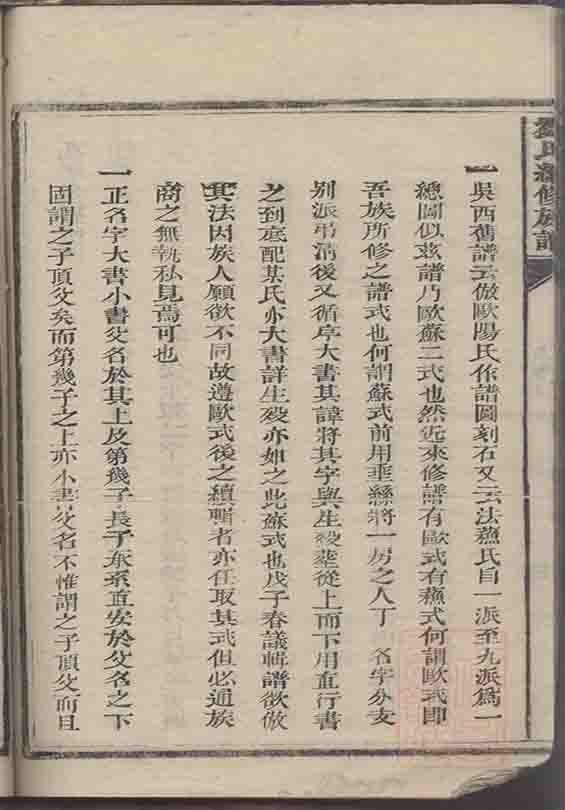 劉氏續修族譜
一吳西舊譜云倣歐陽氏作譜圖刻石又云法蘇氏自一派至九派爲一
總圖似玆譜乃歐蘇二式也然近來修譜有歐式有蘇式何謂歐式即
吾族所修之譜式也何謂蘇式前用垂絲將一房之人丁 名字分支
別派弔淸後又循序大書其諱將其字與生殁塟從上而下用直行書
之到底配某氏亦大書詳生殁亦如之此蘇式也戊子春議輯譜欲倣
其法因族人願欲不同故遵歐式後之續輯者亦任取其式但必通族
商之無執私見焉可也
一正名字大書小書父名於其上及第幾子長子東系直安於父名之下
固謂之子頂父矣而第幾子之上亦小書父名不惟謂之子頂父而且